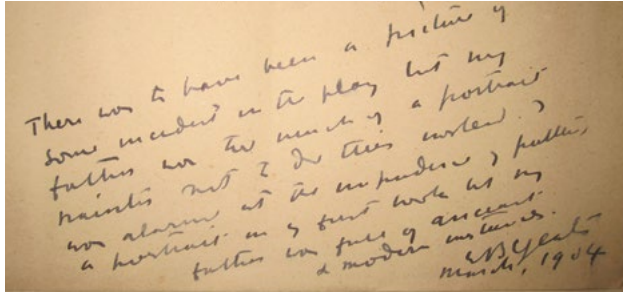 There was to have been a picture of
some incident in the play but my
father was too much of a portrait
painter not to do this instead. I
was alarmed at the impudence of putting
a portrait in my first book but my
father was full of ancient
& modern instances.
WBYeats
March, 1904